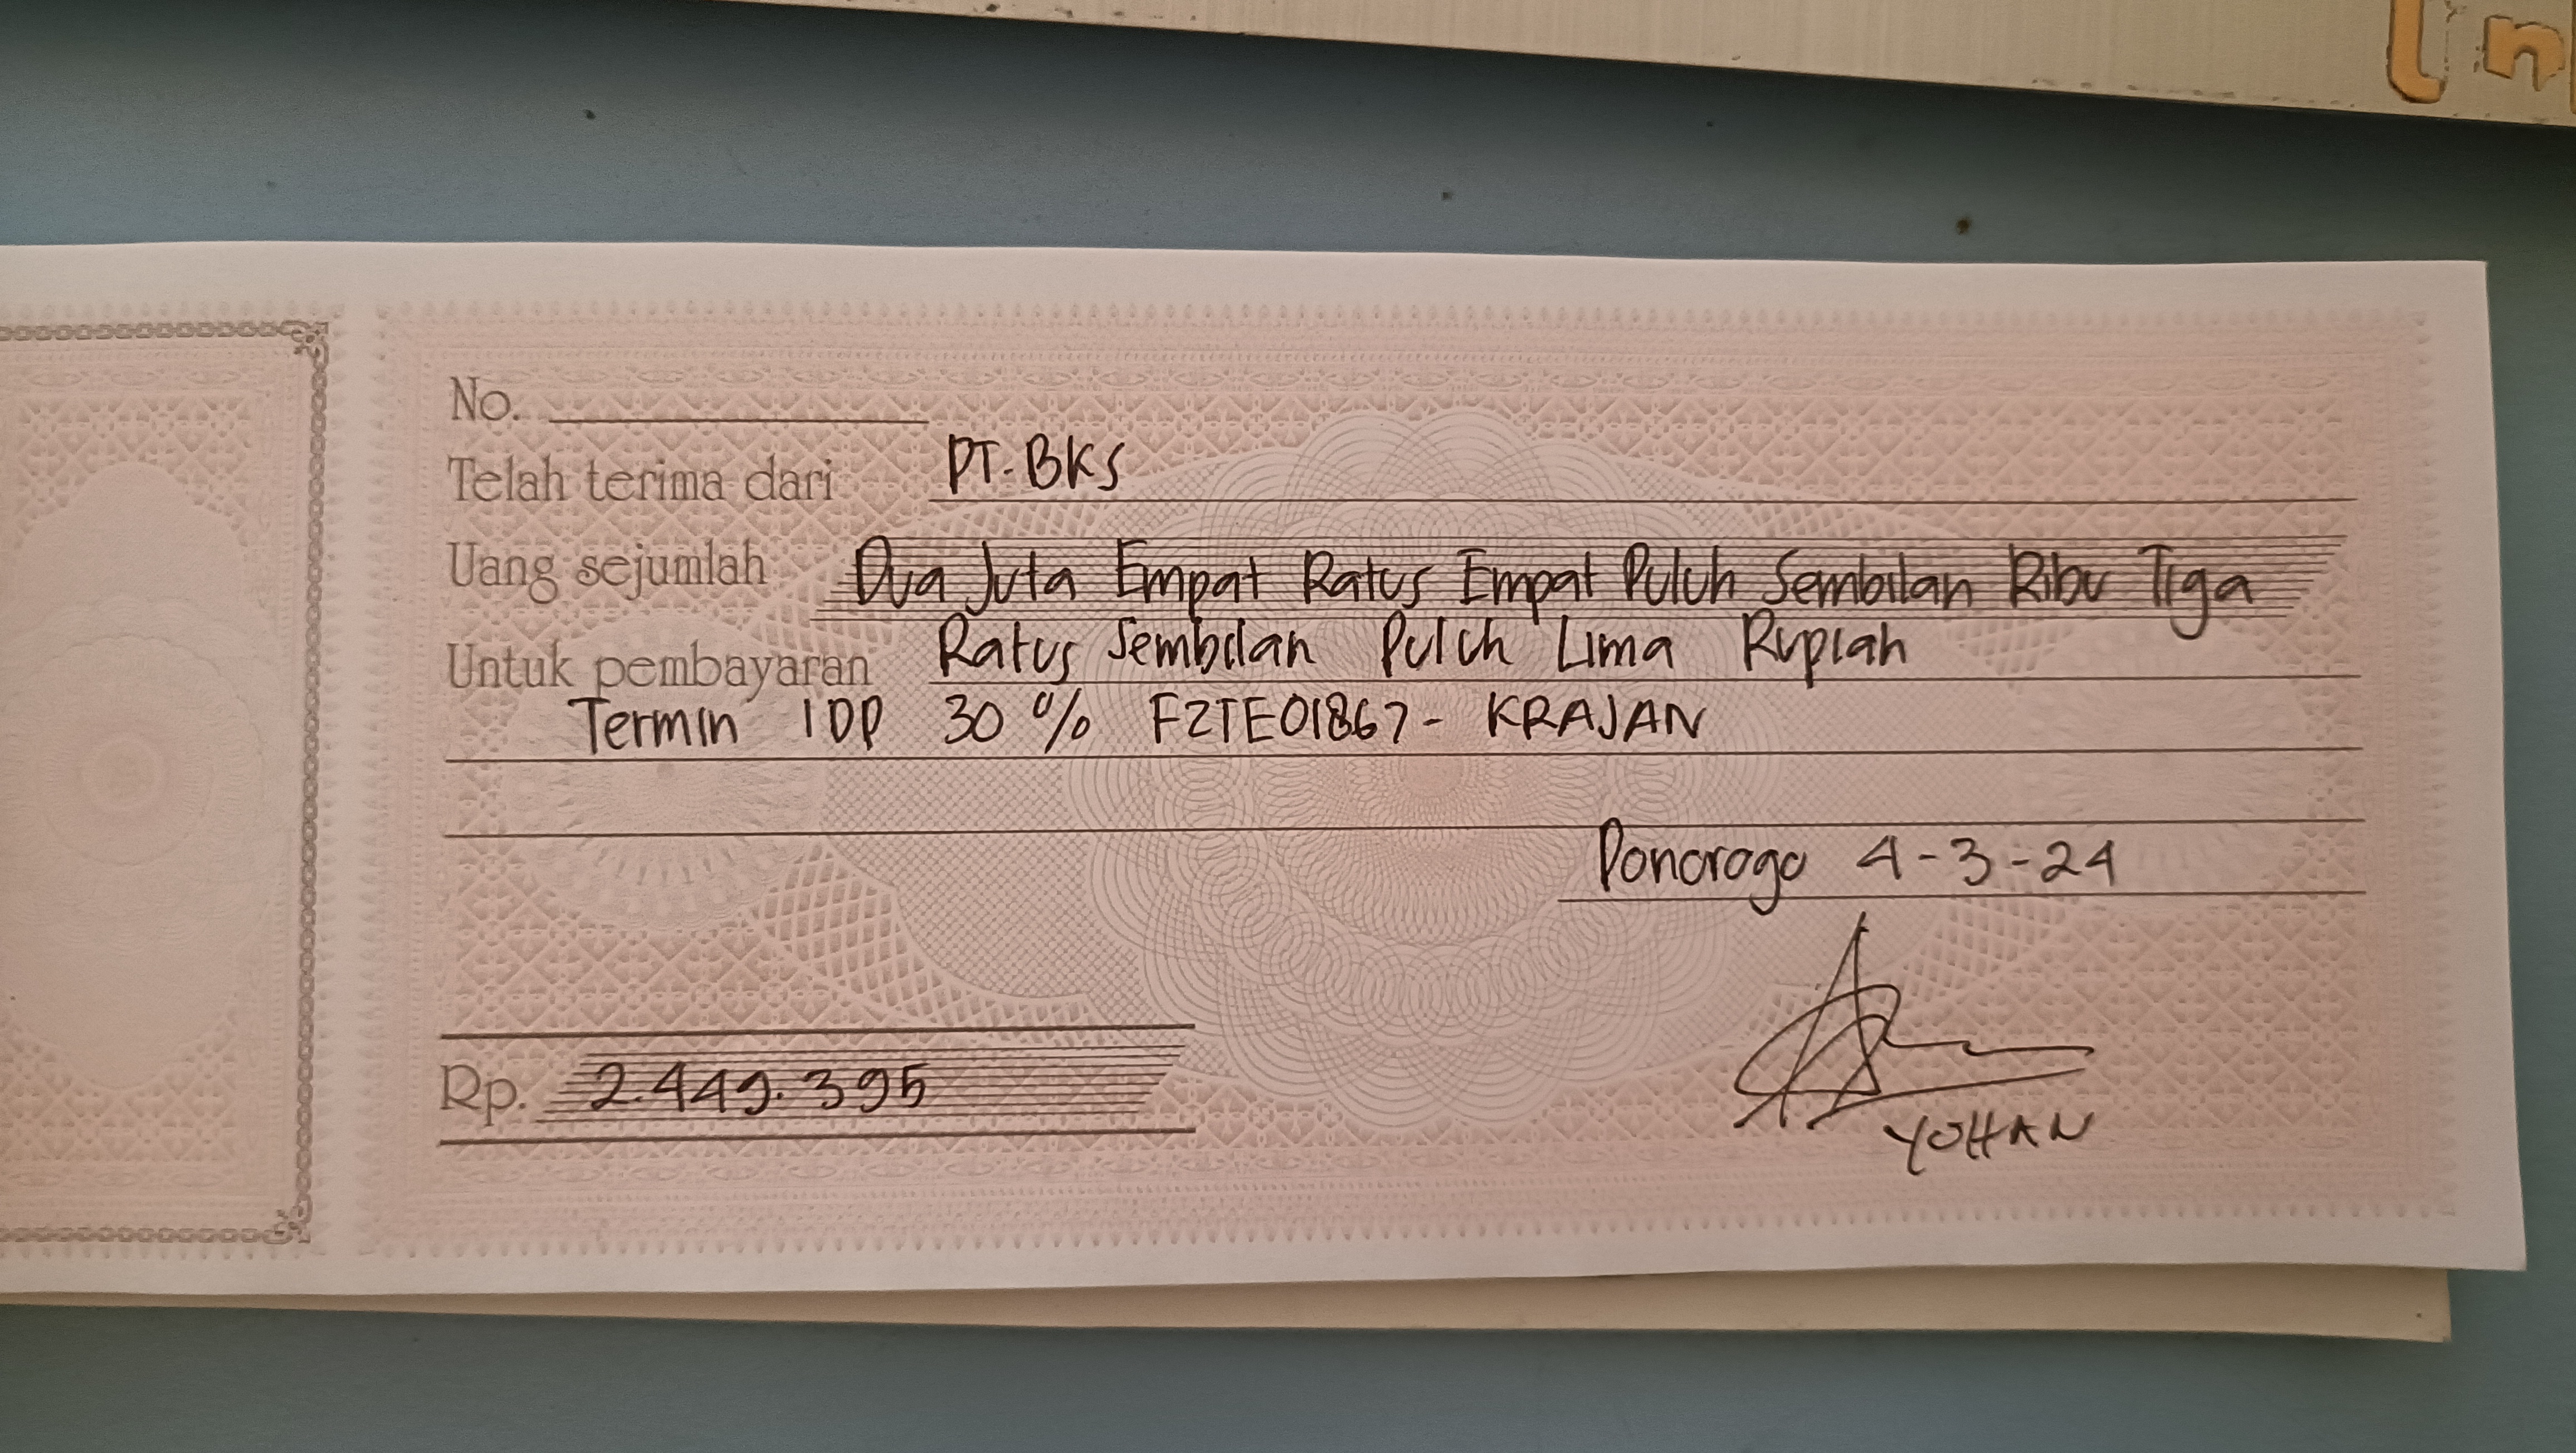 ln
No.
Telah terima dari PT. BKS
Uang sejumlah Dua Juta Empat Ratus Empat Puluh Sembilan Ribu Tiga
Ratus Sembilan Puluh Lima Rupiah
Untuk pembayaran
Termin 1 DP 30 % FZTE01867 - KRAJAN
Ponorogo 4-3-24
Rp. 2.449.395
YOHAN